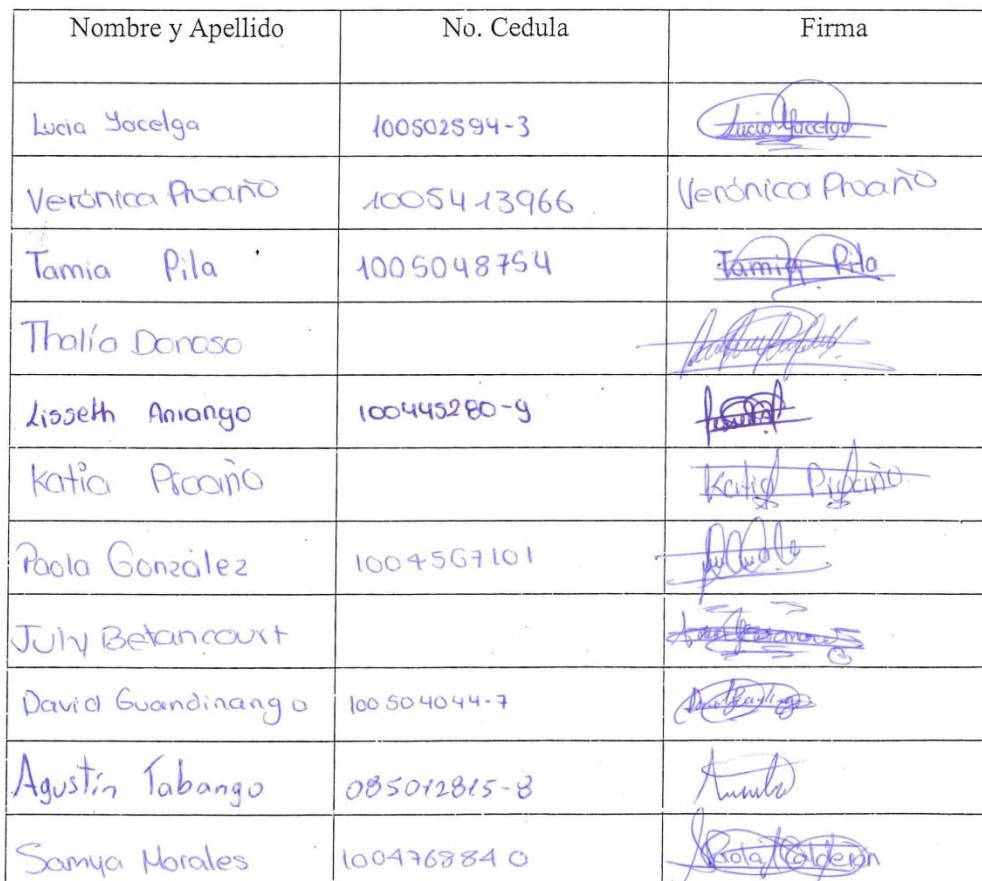 Nombre y Apellido No. Cedula Firma
Lucia Yacelga 100502594-3 Lucia Yacelga
Verónica Proaño 1005413966 Verónica Proaño
Tamia Pila 1005048754 Tamia Pila
Thalía Donoso
Lisseth Amango 100445280-9
Katia Proaño Katia Proaño
Paola González 1004567101
July Betancourt
David Guandinango 100504044-7
Agustín Tabango 085012815-8
Samya Morales 1004768840 Paola Calderón